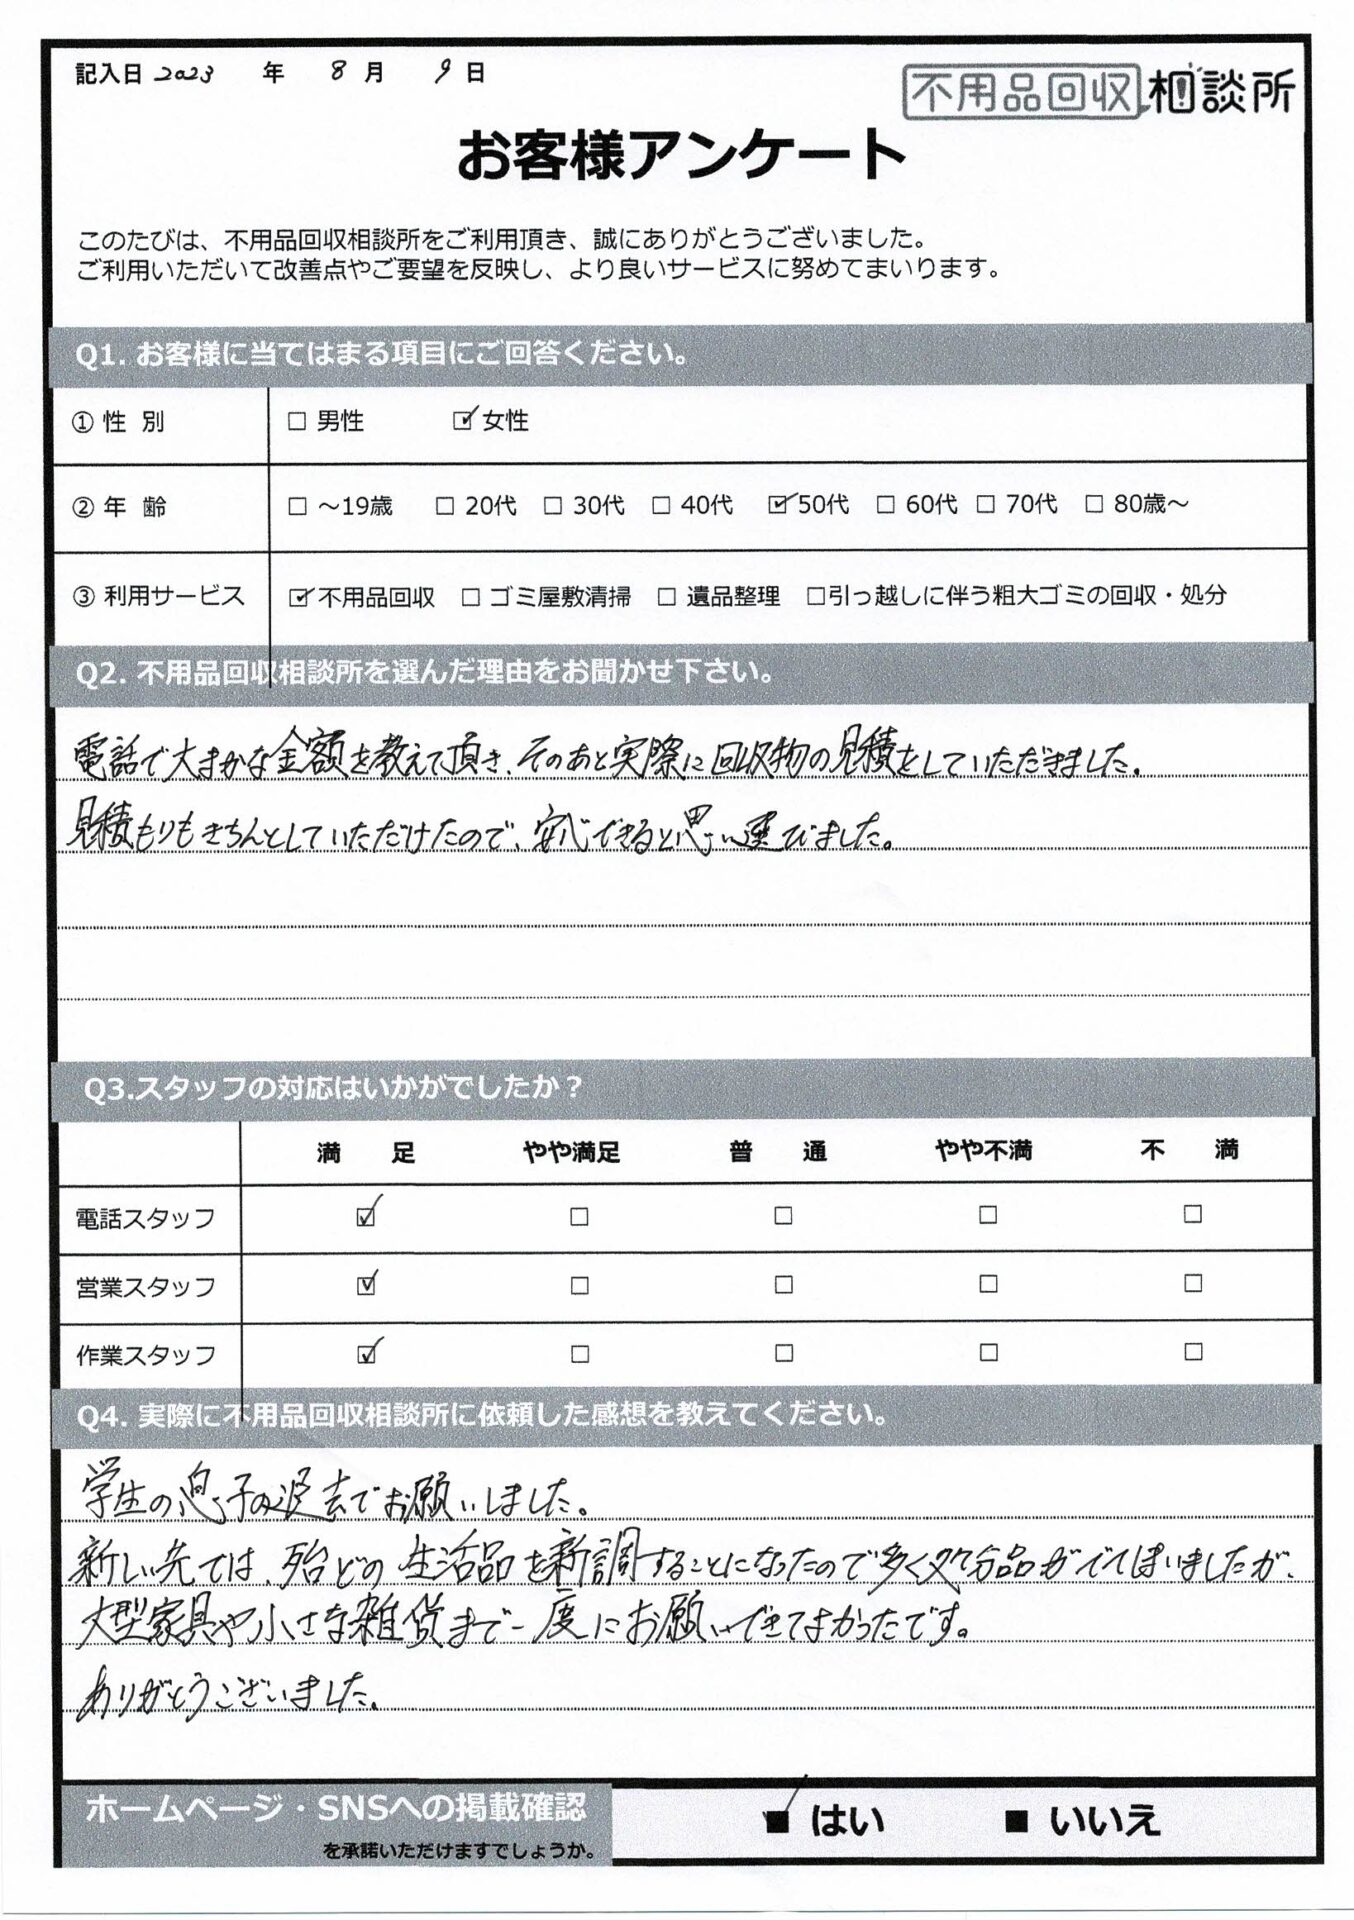 記入日 2023 年 8 月 9 日
不用品回収相談所
お客様アンケート
このたびは、不用品回収相談所をご利用頂き、誠にありがとうございました。
ご利用いただいて改善点やご要望を反映し、より良いサービスに努めてまいります。
Q1. お客様に当てはまる項目にご回答ください。
① 性 別 □ 男性 ☑ 女性
② 年 齢 □ ～19歳 □ 20代 □ 30代 □ 40代 ☑ 50代 □ 60代 □ 70代 □ 80歳～
③ 利用サービス ☑ 不用品回収 □ ゴミ屋敷清掃 □ 遺品整理 □引っ越しに伴う粗大ゴミの回収・処分
Q2. 不用品回収相談所を選んだ理由をお聞かせ下さい。
電話で大まかな金額を教えて頂き、そのあと実際に回収物の見積をしていただきました。
見積もりもきちんとしていただけたので、安心できると思い選びました。
Q3.スタッフの対応はいかがでしたか？
満 足 やや満足 普 通 やや不満 不 満
電話スタッフ ☑ □ □ □ □
営業スタッフ ☑ □ □ □ □
作業スタッフ ☑ □ □ □ □
Q4. 実際に不用品回収相談所に依頼した感想を教えてください。
学生の息子の退去でお願いしました。
新しい先では、殆どの生活品を新調することになったので多く処分品がでてしまいましたが、
大型家具や小さな雑貨まで一度にお願いできてよかったです。
ありがとうございました。
ホームページ・SNSへの掲載確認 ■ はい ■ いいえ
を承諾いただけますでしょうか。